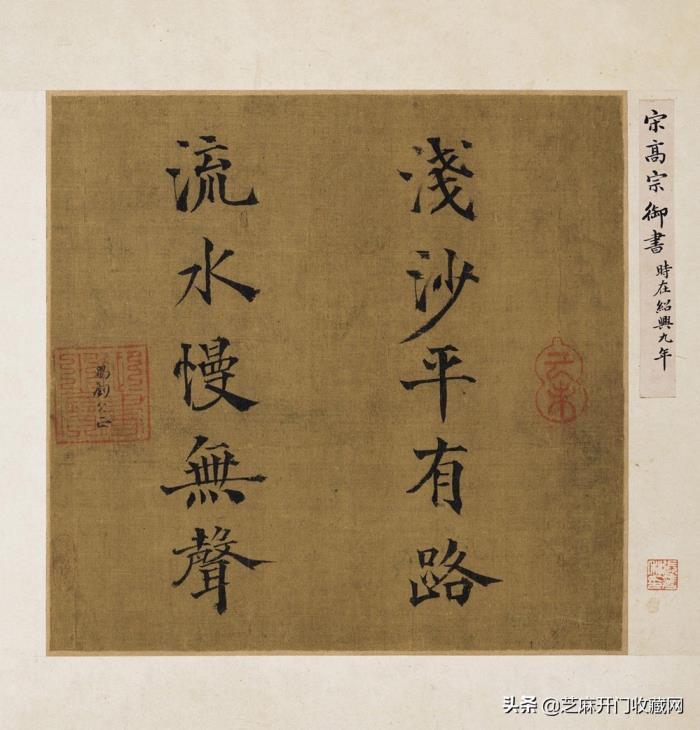 宋高宗御書 時在紹興九年
淺沙平有路
流水慢無聲
賜劉公正
头条 @芝麻开门收藏网